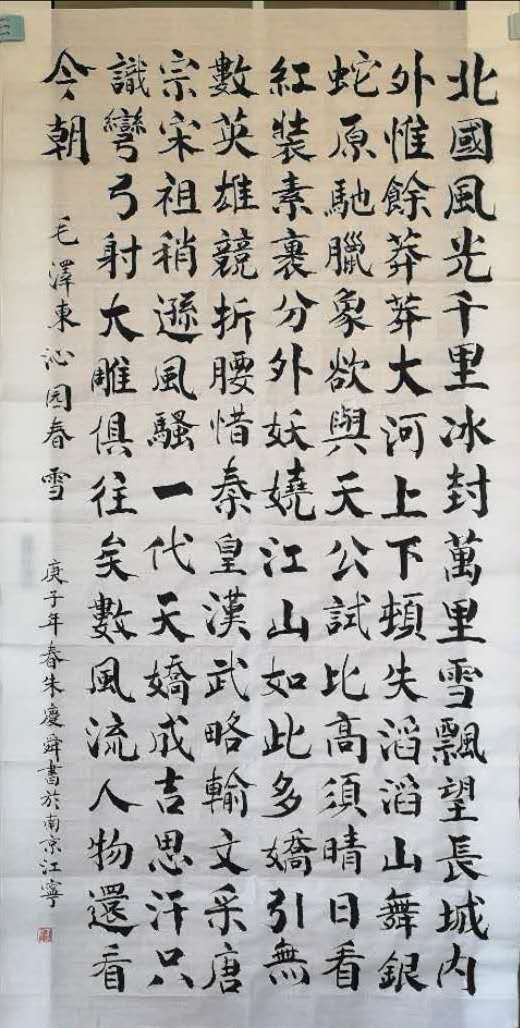 北國風光千里冰封萬里雪飄望長城内
外惟餘莽莽大河上下頓失滔滔山舞銀
蛇原馳臘象欲與天公試比高須晴日看
紅裝素裹分外妖嬈江山如此多嬌引無
數英雄競折腰惜秦皇漢武略輸文采唐
宗宋祖稍遜風騷一代天嬌成吉思汗只
識彎弓射大雕俱往矣數風流人物還看
今朝
毛澤東沁园春雪
庚子年春朱慶舜書於南京江寧